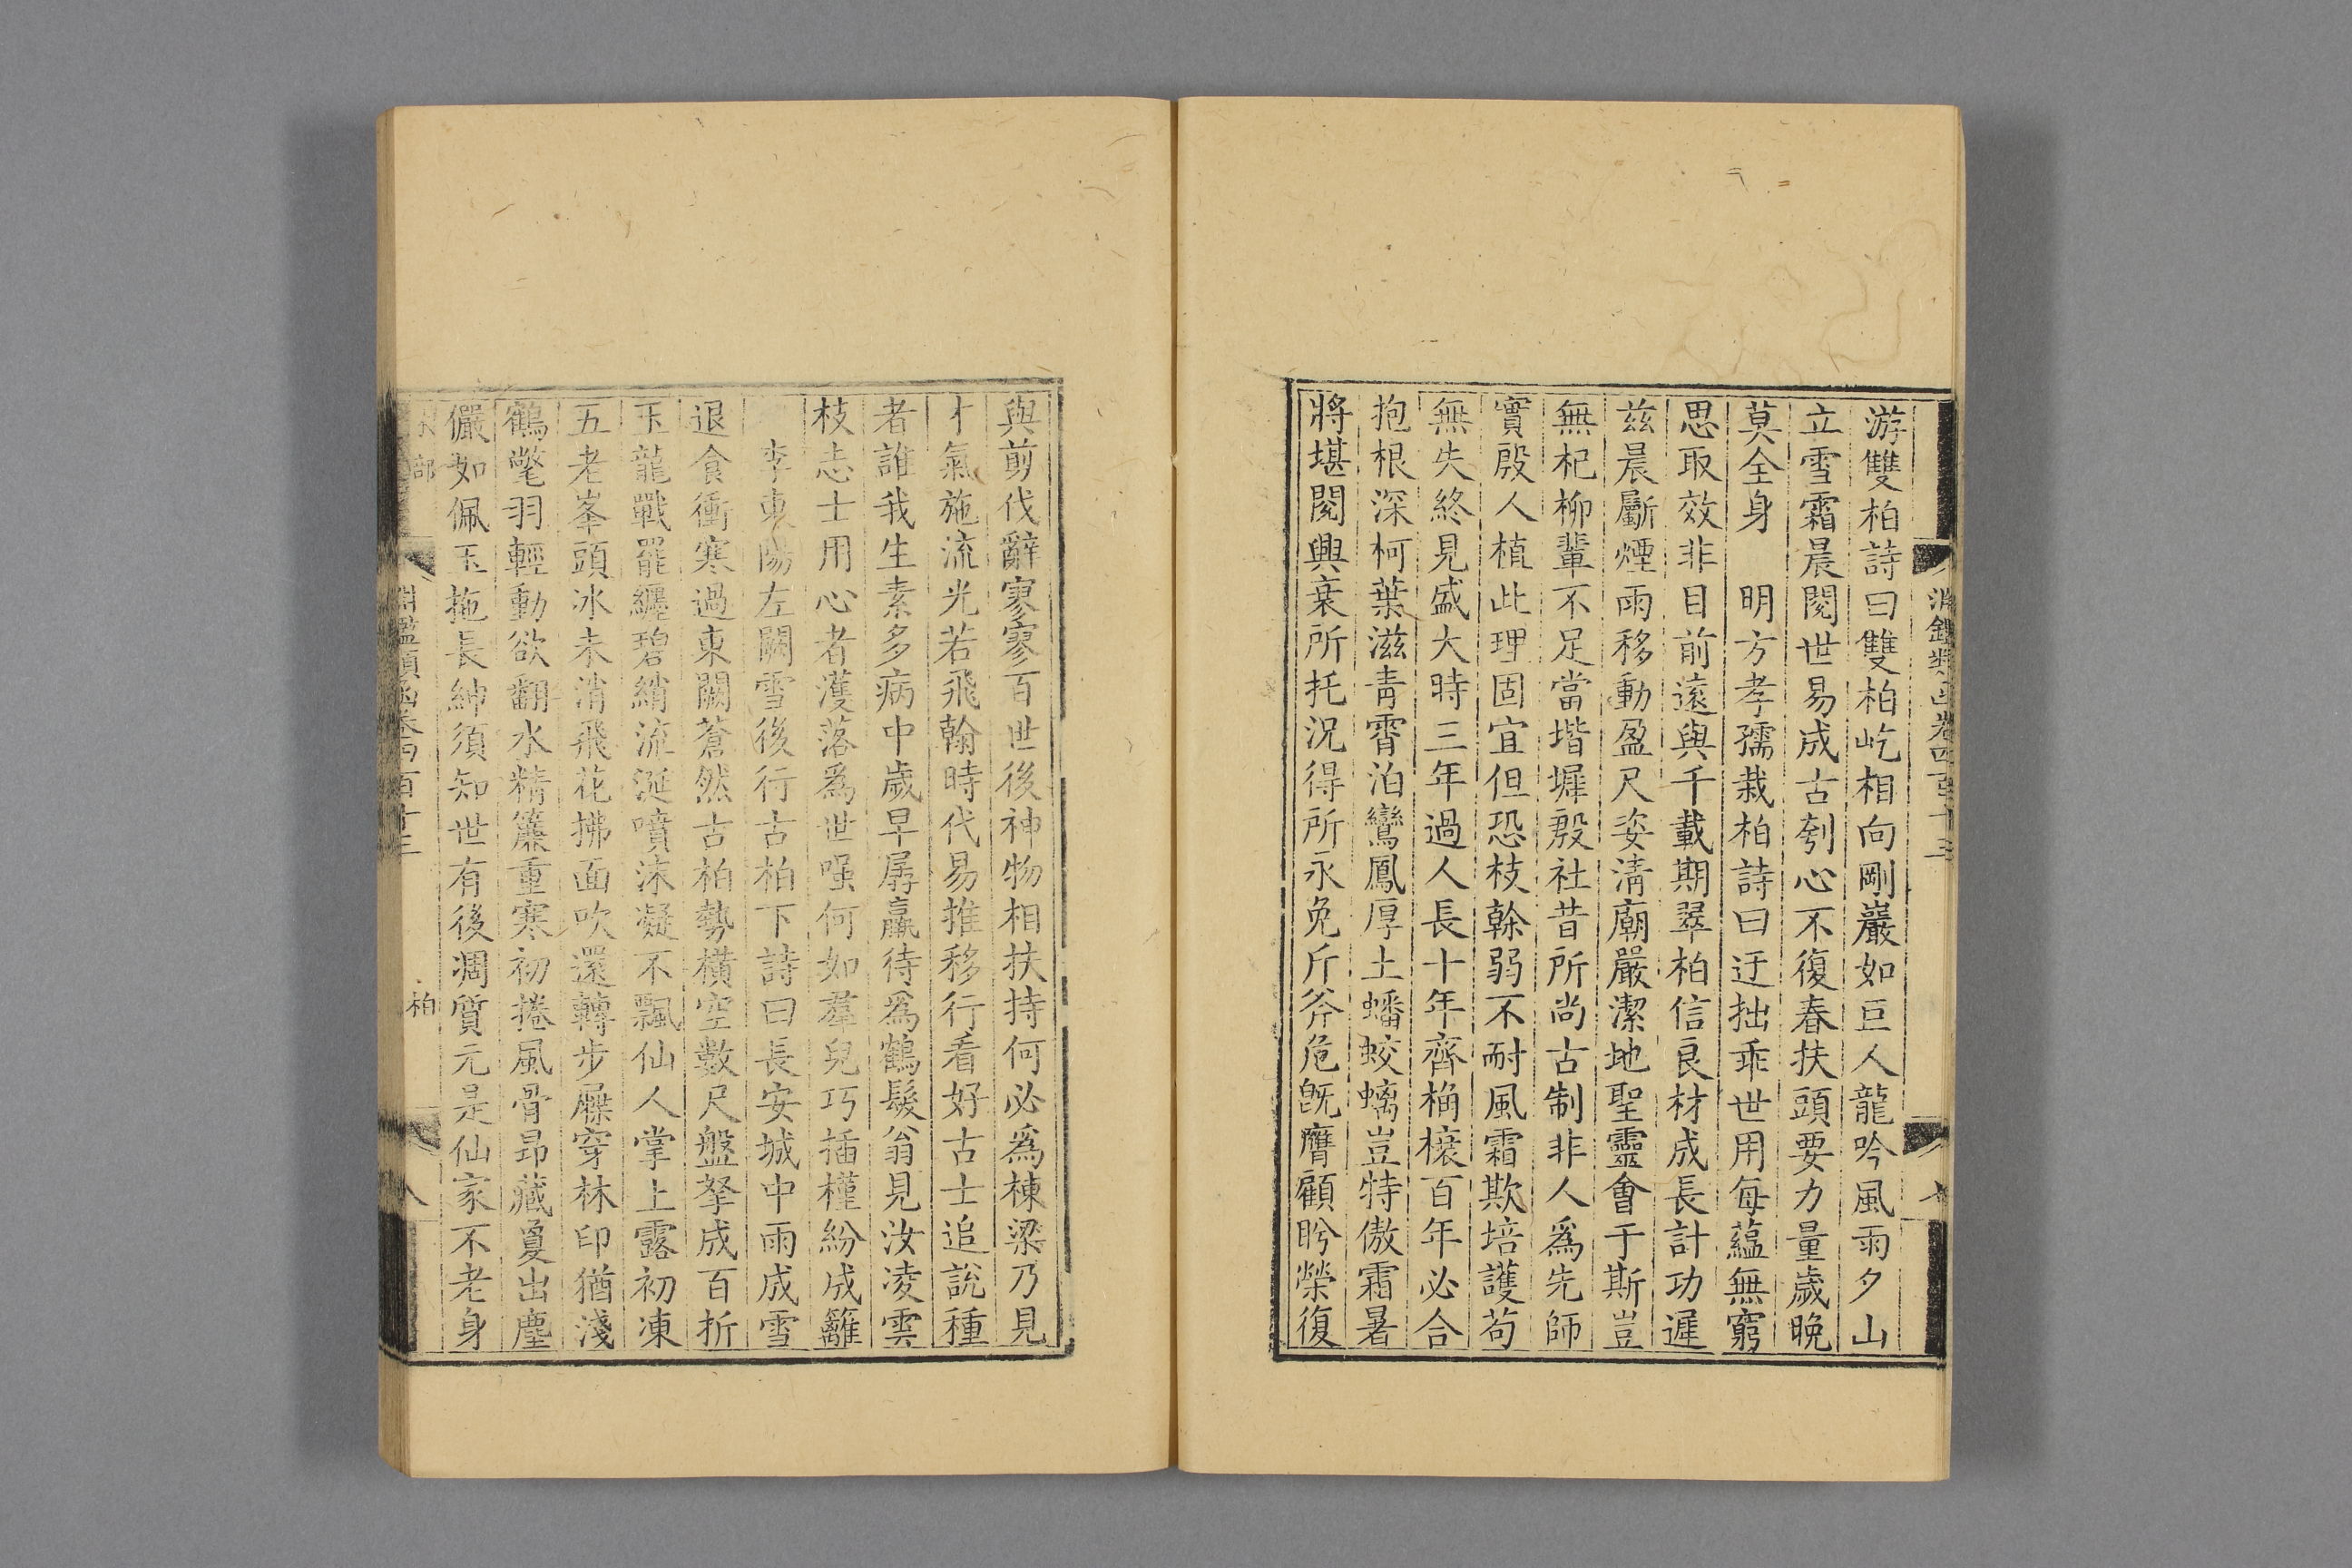 淵鑑類函卷四百十三
七
游雙柏詩曰雙柏屹相向剛巖如巨人龍吟風雨夕山
立雪霜晨閱世易成古刳心不復春扶頭要力量歲晚
莫全身　明方孝孺栽柏詩曰迂拙乖世用每蘊無窮
思取效非目前遠與千載期翠柏信良材成長計功遲
兹晨斸煙雨移動盈尺姿淸廟嚴潔地聖靈會于斯豈
無杞柳輩不足當堦墀殷社昔所尚古制非人爲先師
實殷人植此理固宜但恐枝榦弱不耐風霜欺培護苟
無失終見盛大時三年過人長十年齊桷榱百年必合
抱根深柯葉滋靑霄泊鸞鳳厚土蟠蛟螭豈特傲霜暑
將堪閱興衰所托況得所永免斤斧危旣膺顧盻榮復
與剪伐辭寥寥百世後神物相扶持何必爲棟梁乃見
才氣施流光若飛翰時代易推移行看好古士追說種
者誰我生素多病中歲早孱羸待爲鶴髮翁見汝凌雲
枝志士用心者濩落爲世嗤何如羣兒巧插槿紛成籬
李東陽左闕雪後行古柏下詩曰長安城中雨成雪
退食衝寒過東闕蒼然古柏勢橫空數尺盤拏成百折
玉龍戰罷纏碧綃流涎噴沫凝不飄仙人掌上露初凍
五老峯頭冰未消飛花拂面吹還轉步屧穿林印猶淺
鶴氅羽輕動欲翻水精簾重寒初捲風骨昂藏夐出塵
儼如佩玉拖長紳須知世有後凋質元是仙家不老身
木部
淵鑑類函卷四百十三
柏
八